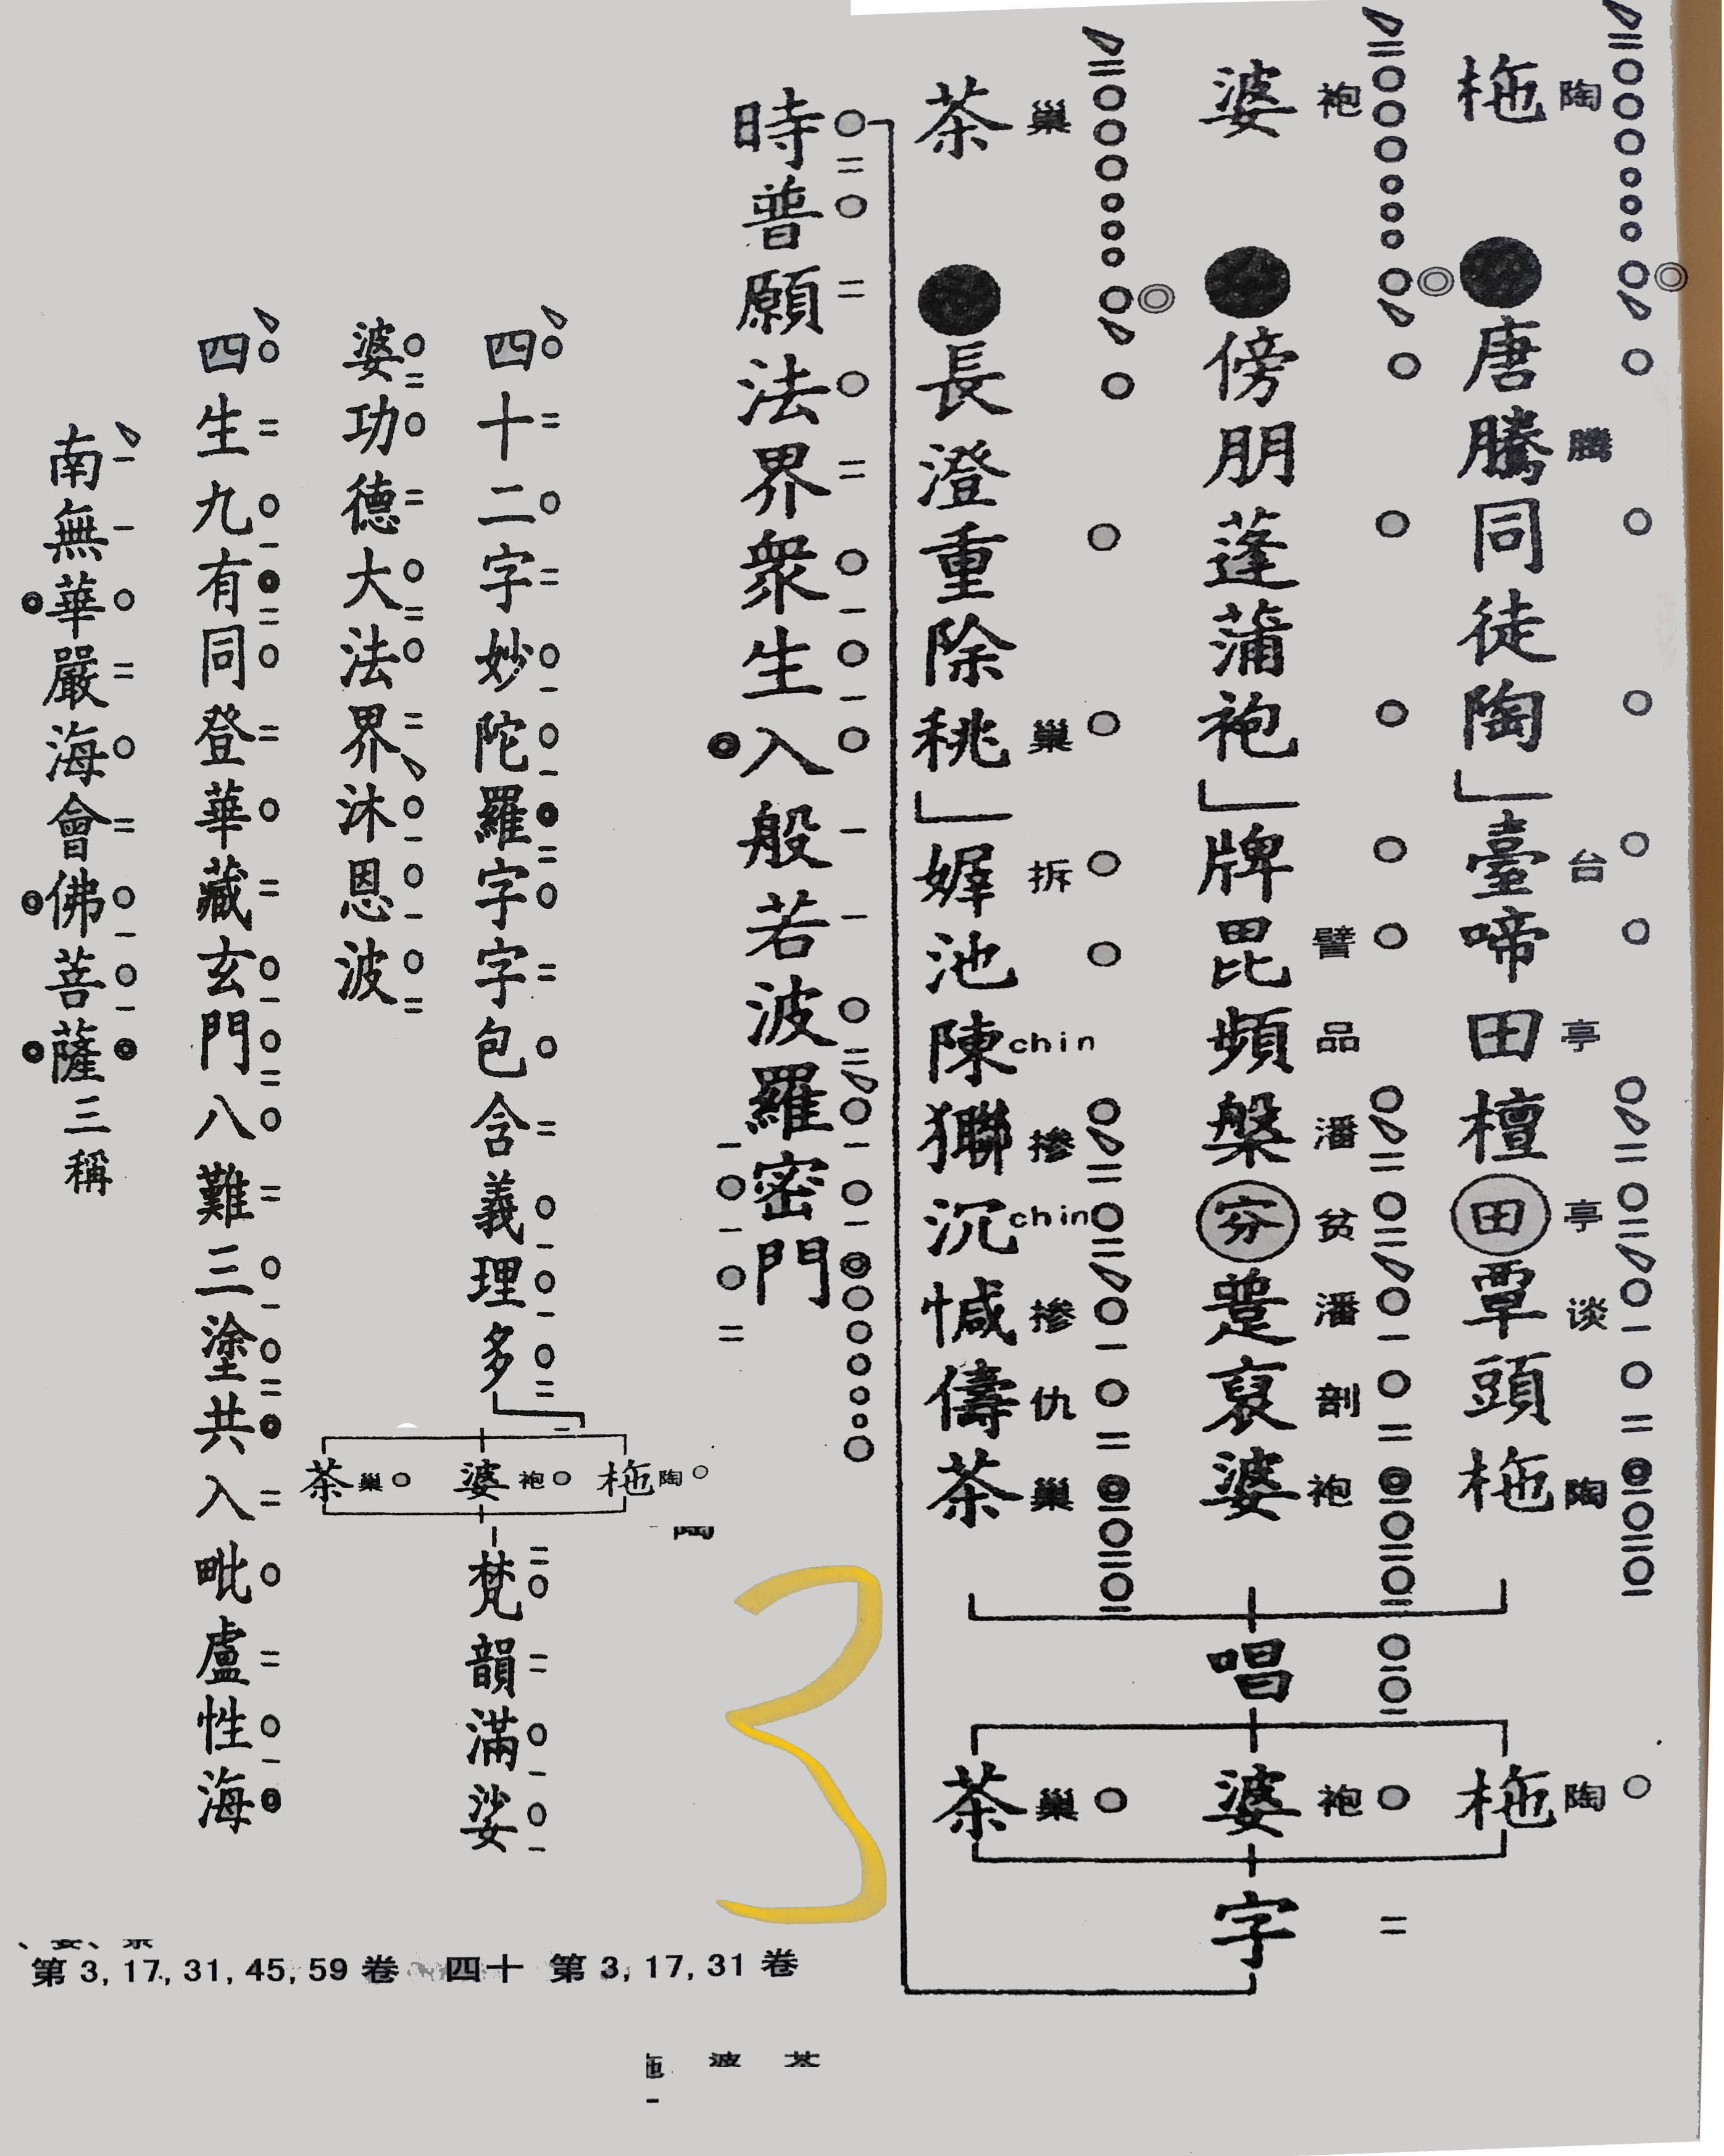 柂陶
唐騰騰同徒陶
臺台啼田亭檀田亭覃谈頭柂陶
婆袍
傍朋蓬蒲袍
牌毘譬頻品槃潘穷贫蹔潘裒剖婆袍
茶巢
長澄重除𥞃巢
池陳chin 掺沉chin 掺儔仇茶巢
唱
柂陶
婆袍
茶巢
字
時普願法界衆生入般若波羅密門
四十二字妙陀羅字字包含義理多
柂陶
婆袍
茶巢
梵韻滿娑
婆功德大法界沐恩波
四生九有同登華藏玄門八難三塗共入毗盧性海
南無華嚴海會佛菩薩三稱
3
第 3, 17, 31, 45, 59 卷 四十 第 3, 17, 31 卷